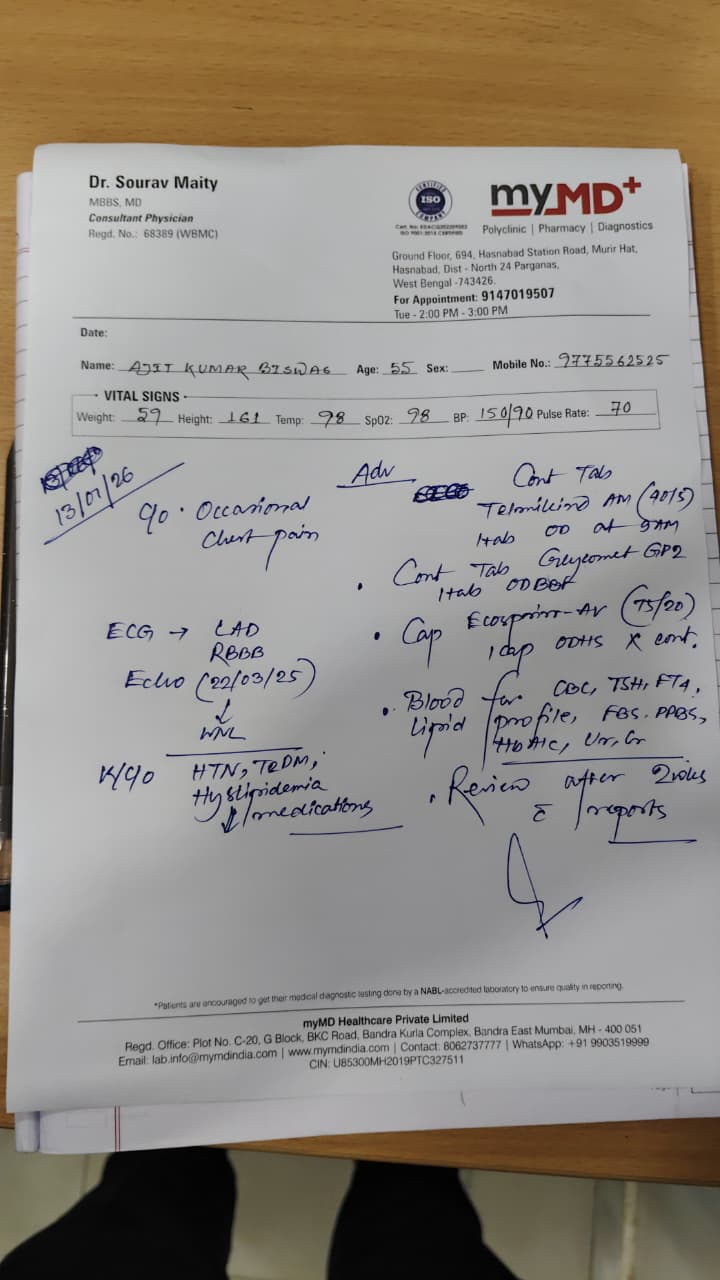 Dr. Sourav Maity
MBBS, MD
Consultant Physician
Regd. No.: 68389 (WBMC)
CERTIFIED
ISO
COMPANY
ISO 9001:2015 CERTIFIED
myMD+
Polyclinic | Pharmacy | Diagnostics
Ground Floor, 694, Hasnabad Station Road, Murir Hat,
Hasnabad, Dist - North 24 Parganas,
West Bengal -743426.
For Appointment: 9147019507
Tue - 2:00 PM - 3:00 PM
Date:
Name: AJIT KUMAR BISWAS Age: 55 Sex: Mobile No.: 9775562525
VITAL SIGNS
Weight: 59 Height: 161 Temp: 98 SpO2: 98 BP: 150/90 Pulse Rate: 70
13/01/26
c/o · Occasional
Chest pain
ECG → LAD
RBBB
Echo (22/03/25)
↓
WNL
K/c/o HTN, T2DM,
medications
Adv
Cont Tab
Telmikind AM (40/5)
1tab OD at 9AM
· Cont Tab Glycomet GP2
1tab OD BBF
· Cap Ecosprin-AV (75/20)
1 cap ODHS x cont.
· Blood for CBC, TSH, FT4,
lipid profile, FBS, PPBS,
HbA1c, Ur, Cr
· Review after 2wks
c̄ reports
*Patients are encouraged to get their medical diagnostic testing done by a NABL-accredited laboratory to ensure quality in reporting.
myMD Healthcare Private Limited
Regd. Office: Plot No. C-20, G Block, BKC Road, Bandra Kurla Complex, Bandra East Mumbai, MH - 400 051
Email: lab.info@mymdindia.com | www.mymdindia.com | Contact: 8062737777 | WhatsApp: +91 9903519999
CIN: U85300MH2019PTC327511